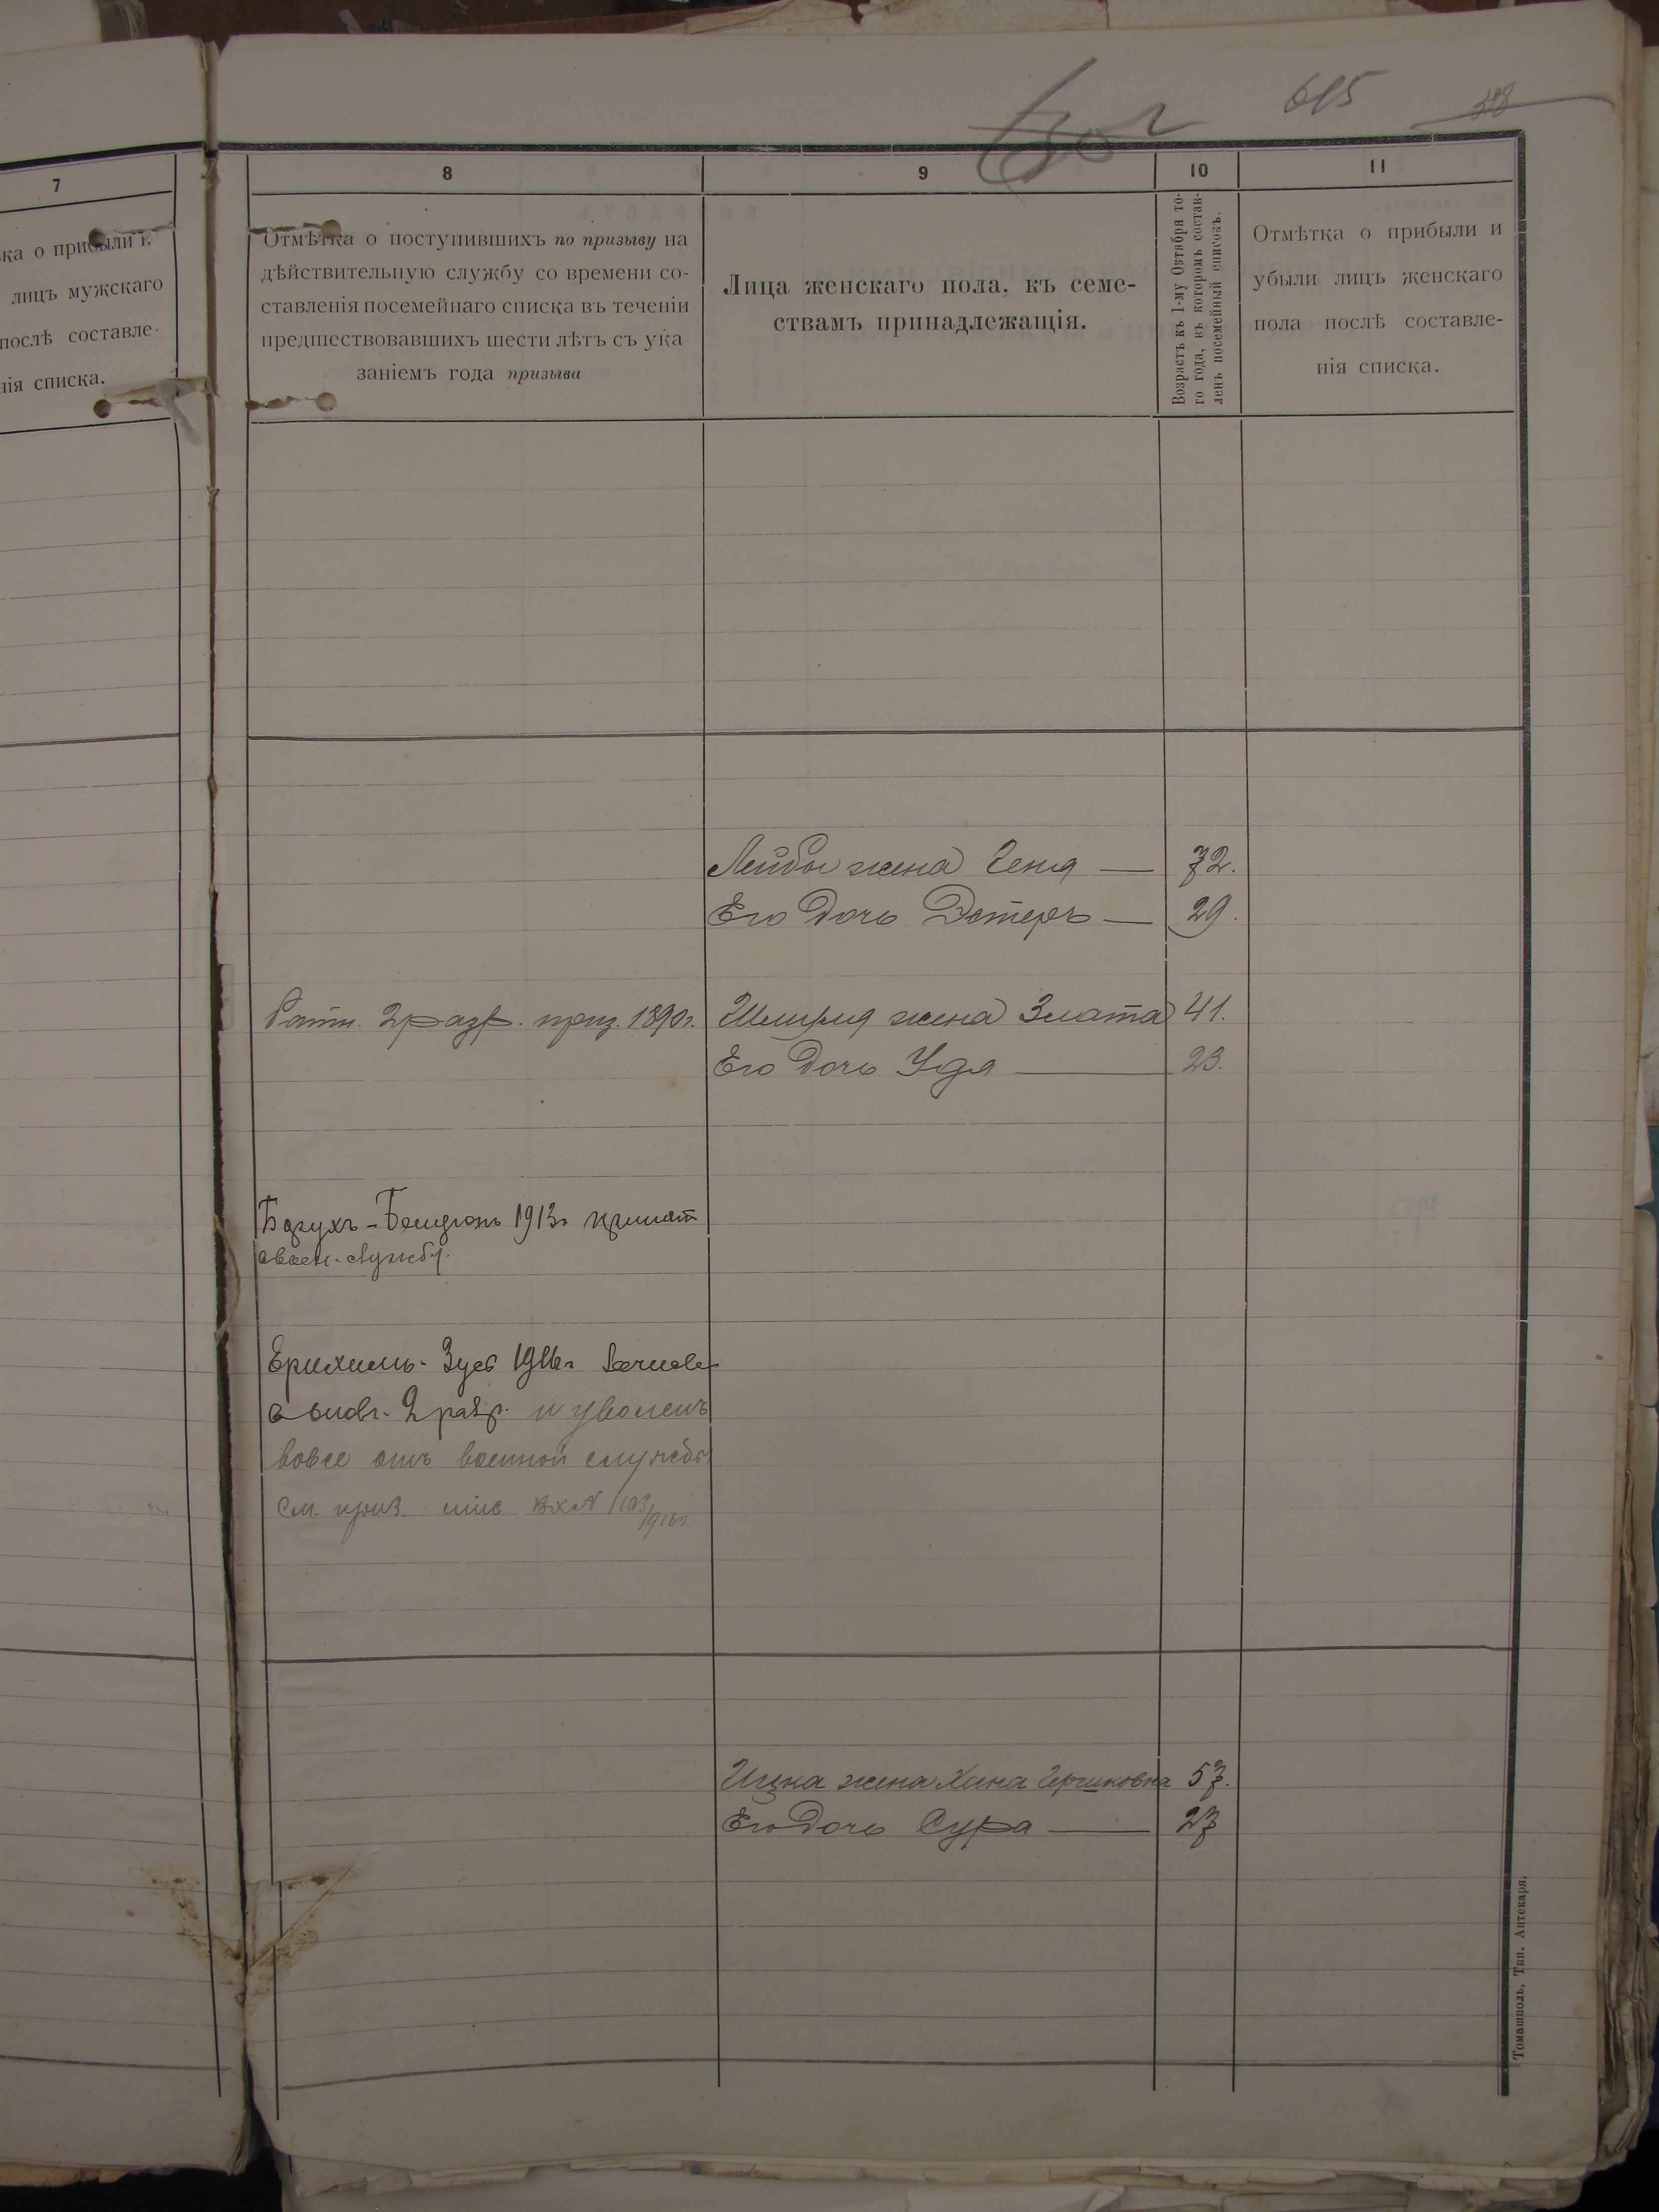 615
7
ка о прибыли и
лицъ мужскаго
послѣ составле-
нія списка.
8
9
10
11
Отмѣтка о поступившихъ по призыву на
дѣйствительную службу со времени со-
ставленія посемейнаго списка въ теченіи
предшествовавшихъ шести лѣтъ съ ука
заніемъ года призыва
Лица женскаго пола, къ семе-
ствамъ принадлежащія.
Возрастъ къ 1-му Октября то-
го года, въ которомъ состав-
ленъ посемейный списокъ.
Отмѣтка о прибыли и
убыли лицъ женскаго
пола послѣ составле-
нія списка.
Лейбы жена Геня — 72.
Его дочь Эстеръ — 29.
Ратн. 2 разр. приз. 1890г.
Шмиля жена Злата 41.
Его дочь Удя — 23.
Борухъ- 1913г принят
воен. службу.
Ерихиль- Зусь 1916г
2 разр. и уволенъ
вовсе отъ военной службы
См. приз. Вх №
Ицка жена Хана Гершковна 57.
Его дочь Сура — 27
Томашполь, Тип. Аптекаря.